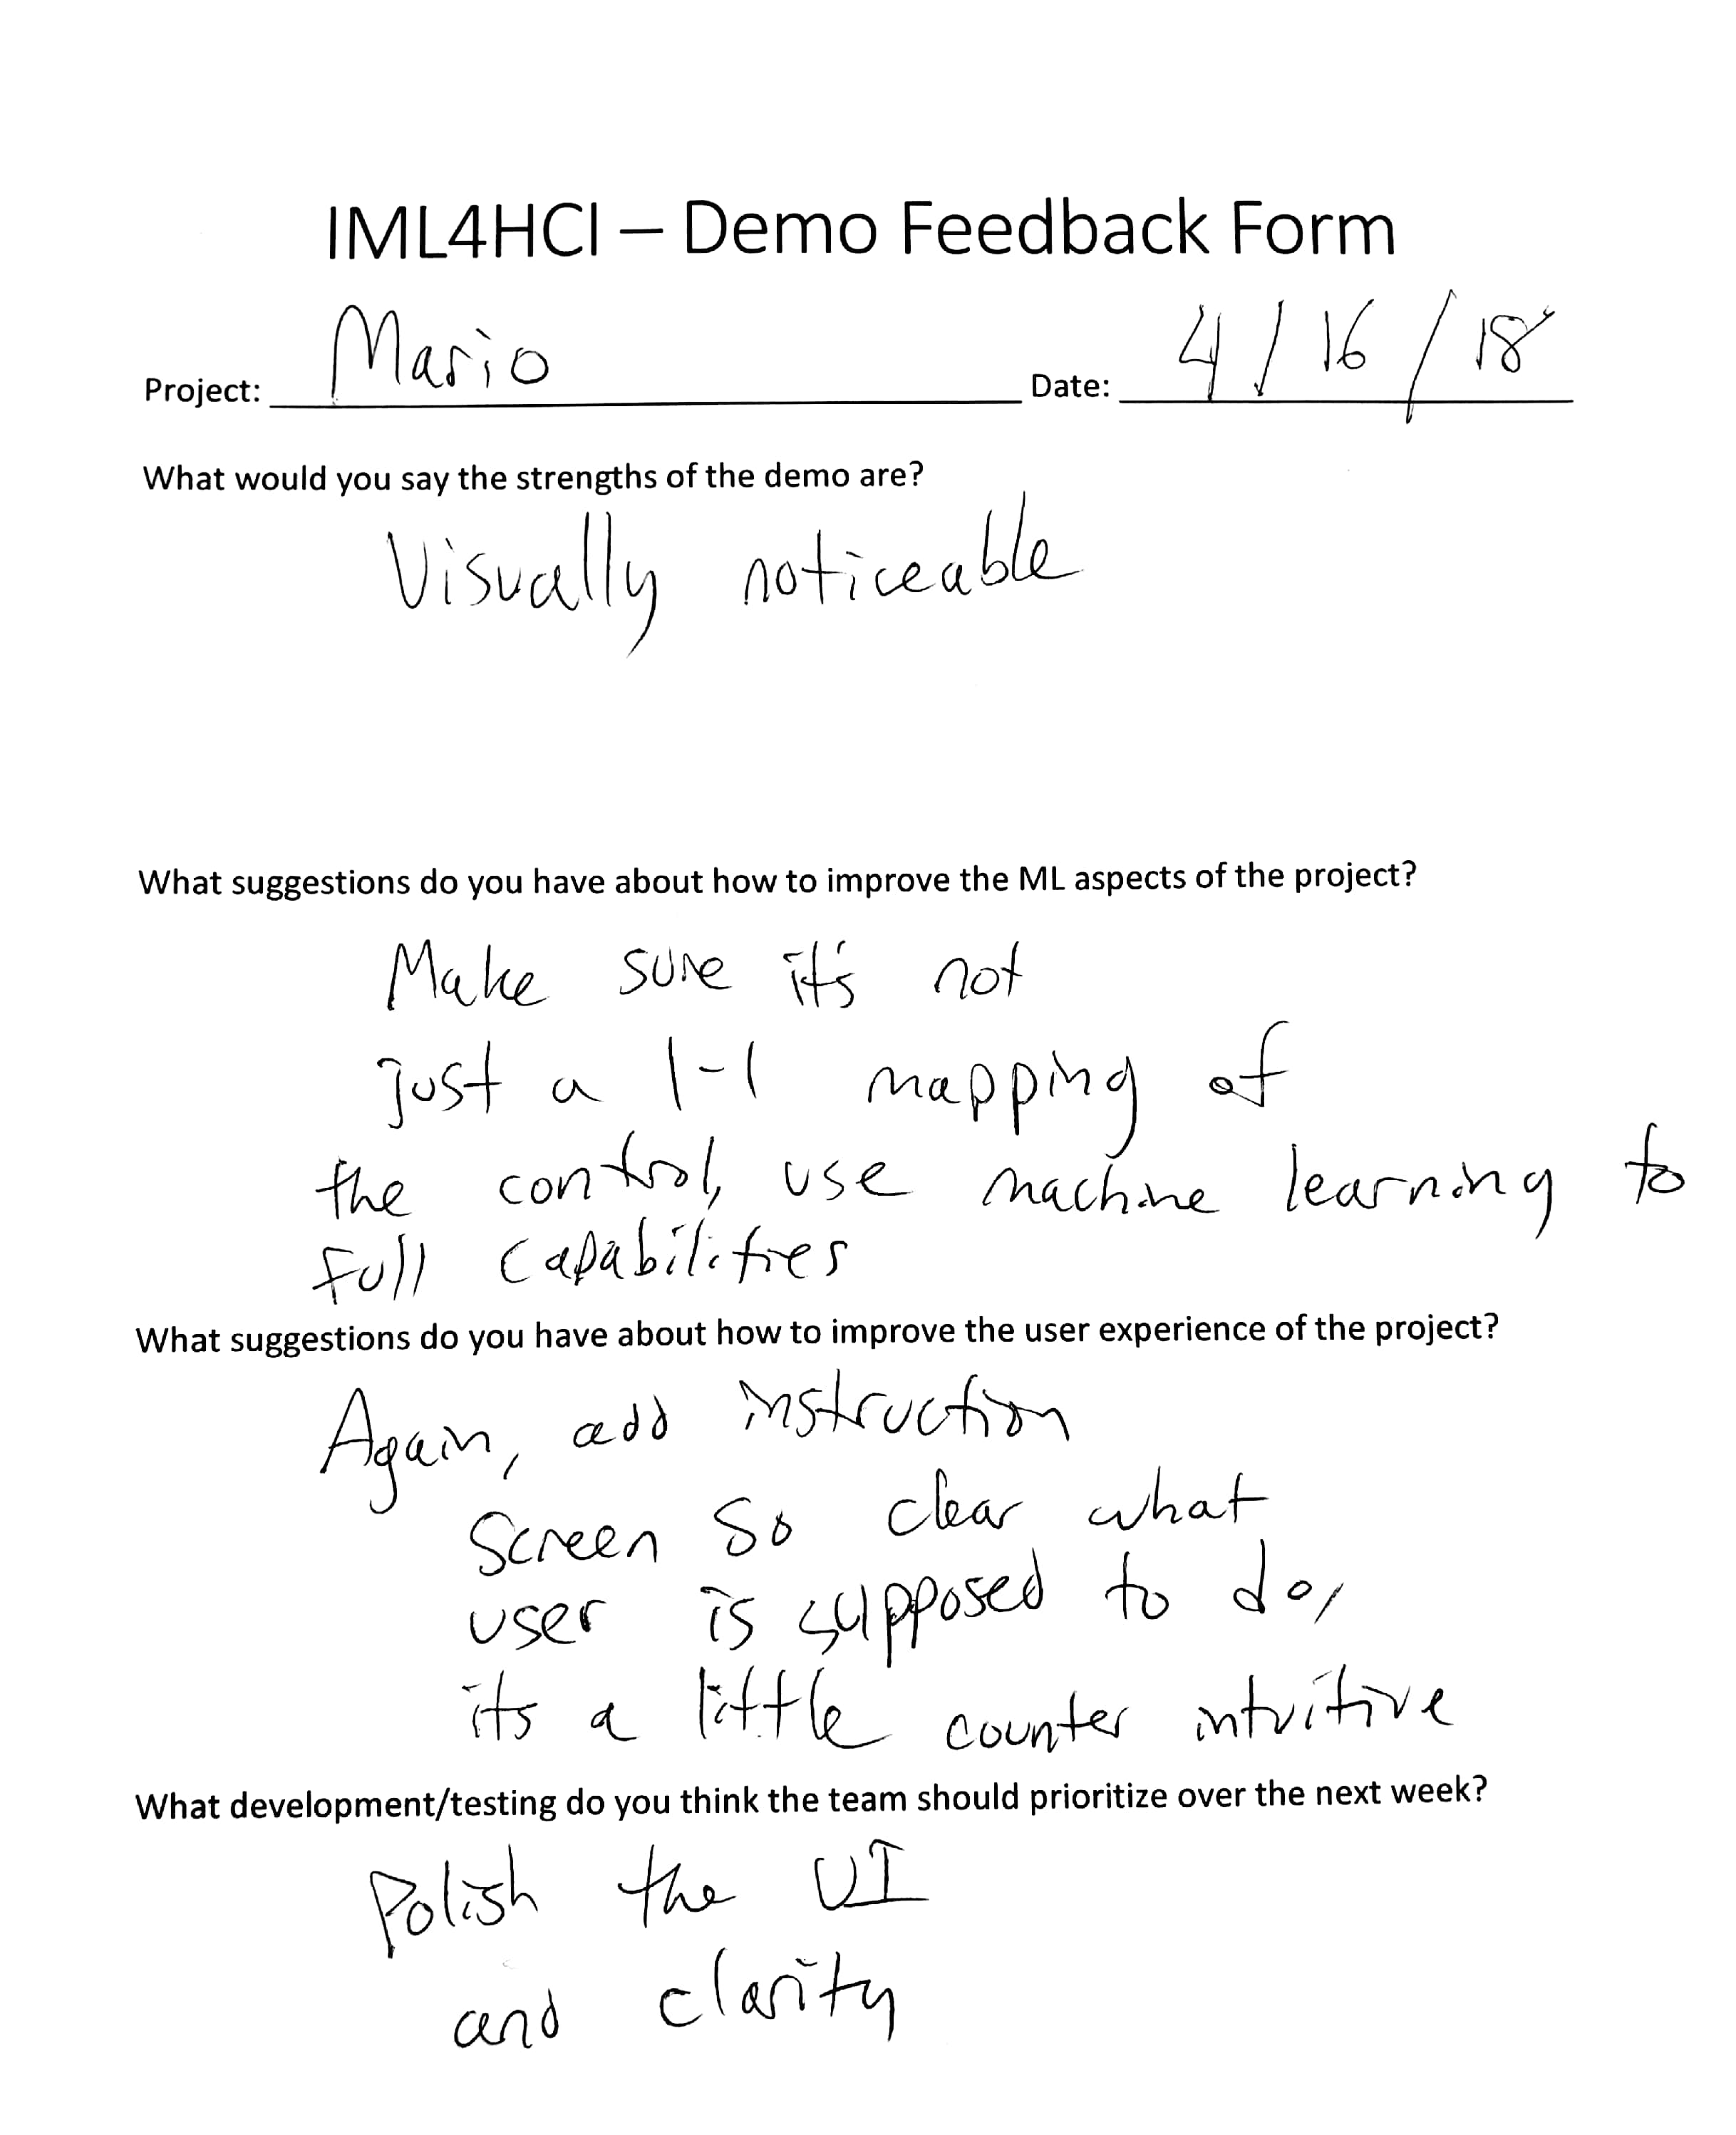 IML4HCI – Demo Feedback Form
Project: Mario Date: 4/16/18
What would you say the strengths of the demo are?
Visually noticeable
What suggestions do you have about how to improve the ML aspects of the project?
Make sure it's not
just a 1-1 mapping of
the control, use machine learning to
full capabilities
What suggestions do you have about how to improve the user experience of the project?
Again, add instruction
screen so clear what
user is supposed to do,
its a little counter intuitive
What development/testing do you think the team should prioritize over the next week?
Polish the UI
and clarity